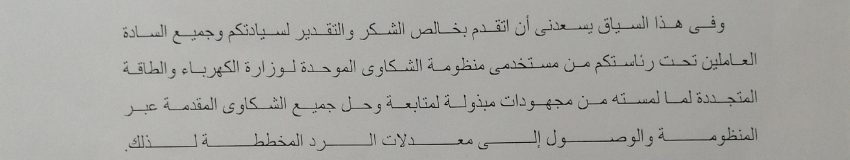 وفى هذا السياق يسعدنى أن اتقدم بخالص الشكر والتقدير لسيادتكم وجميع السادة
العاملين تحت رئاستكم من مستخدمى منظومة الشكاوى الموحدة لوزارة الكهرباء والطاقة
المتجددة لما لمسته من مجهودات مبذولة لمتابعة وحل جميع الشكاوى المقدمة عبر
المنظومة والوصول إلى معدلات الرد المخططة لذلك.